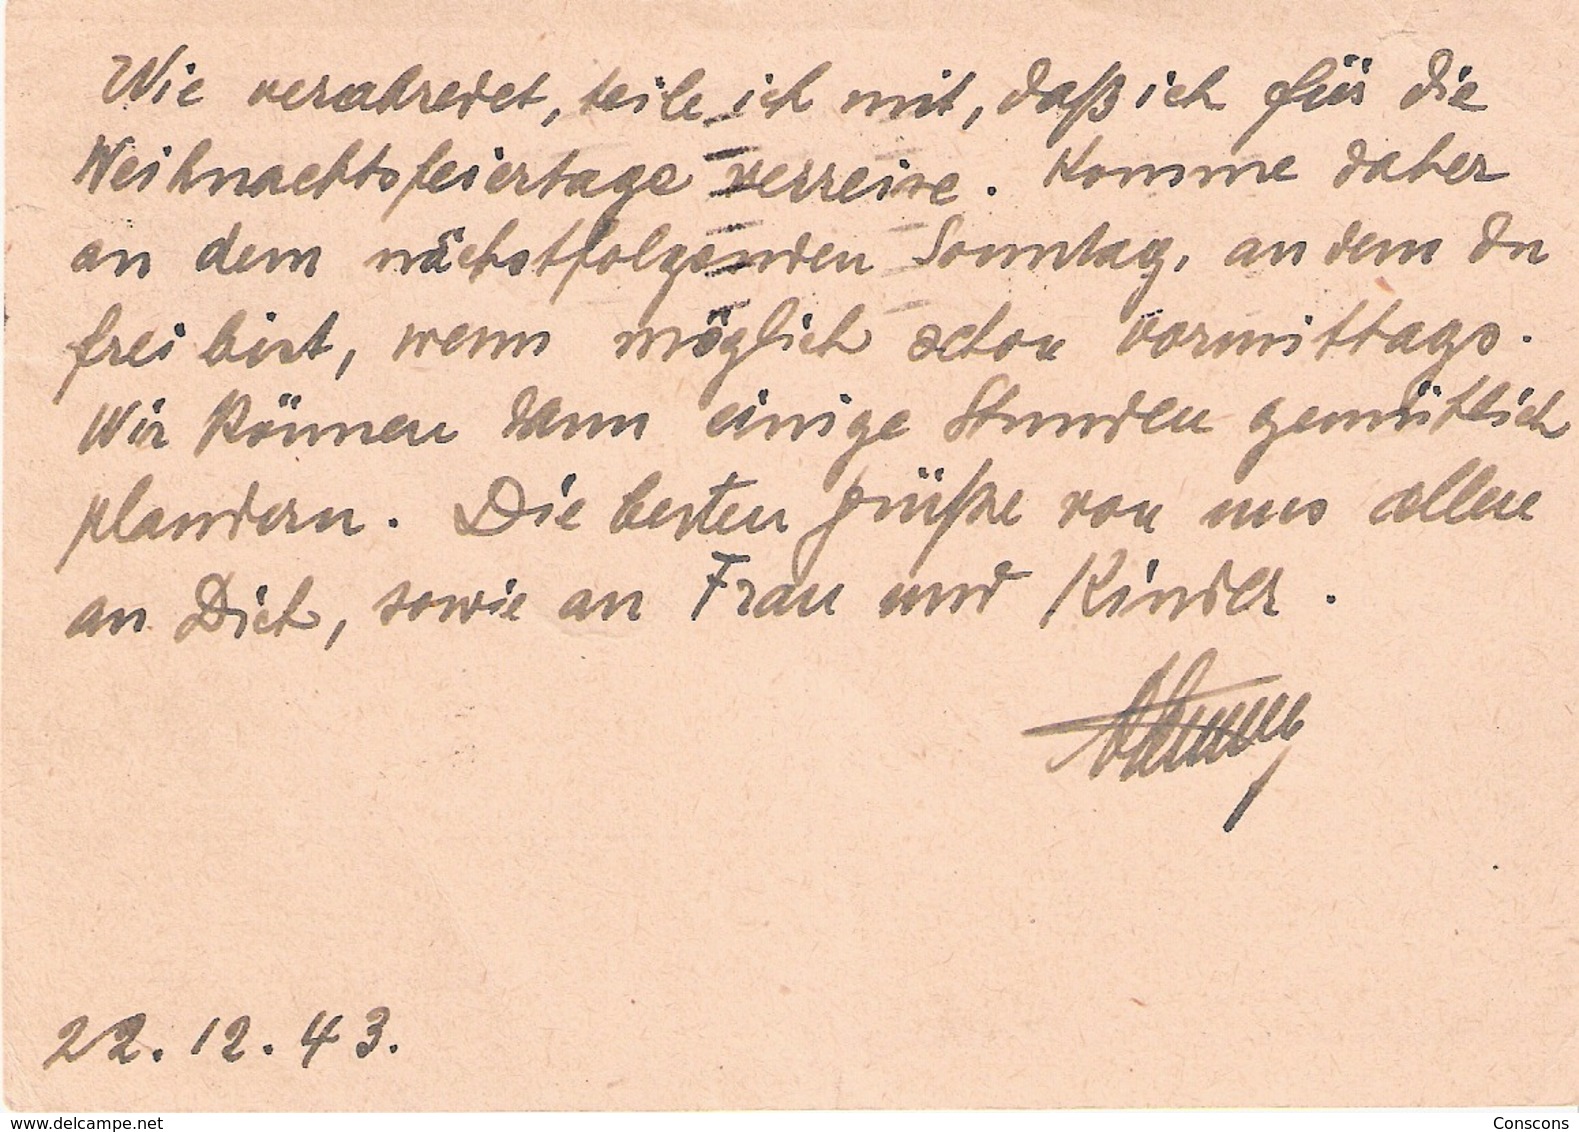 Wie verabredet, teile ich mit, daß ich für die
Weihnachtsfeiertage verreise. Komme daher
an dem nächstfolgenden Sonntag, an dem Du
frei bist, wenn möglich schon vormittags.
Wir können dann einige Stunden gemütlich
plaudern. Die besten Grüße von uns allen
an Dich, sowie an Frau und Kinder.
22.12.43.
www.delcampe.net
Conscons